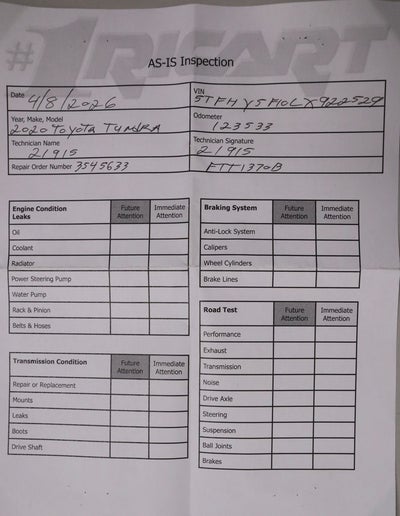 #1RICART
AS-IS Inspection
Date 4/8/2026
VIN 5TFHY5F10LX922529
Year, Make, Model 2020 TOYOTA TUNDRA
Odometer 123533
Technician Name 21915
Technician Signature 21915
Repair Order Number 3545633
FTT1370B
Engine Condition Future Attention Immediate Attention
Leaks
Oil
Coolant
Radiator
Power Steering Pump
Water Pump
Rack & Pinion
Belts & Hoses
Transmission Condition Future Attention Immediate Attention
Repair or Replacement
Mounts
Leaks
Boots
Drive Shaft
Braking System Future Attention Immediate Attention
Anti-Lock System
Calipers
Wheel Cylinders
Brake Lines
Road Test Future Attention Immediate Attention
Performance
Exhaust
Transmission
Noise
Drive Axle
Steering
Suspension
Ball Joints
Brakes